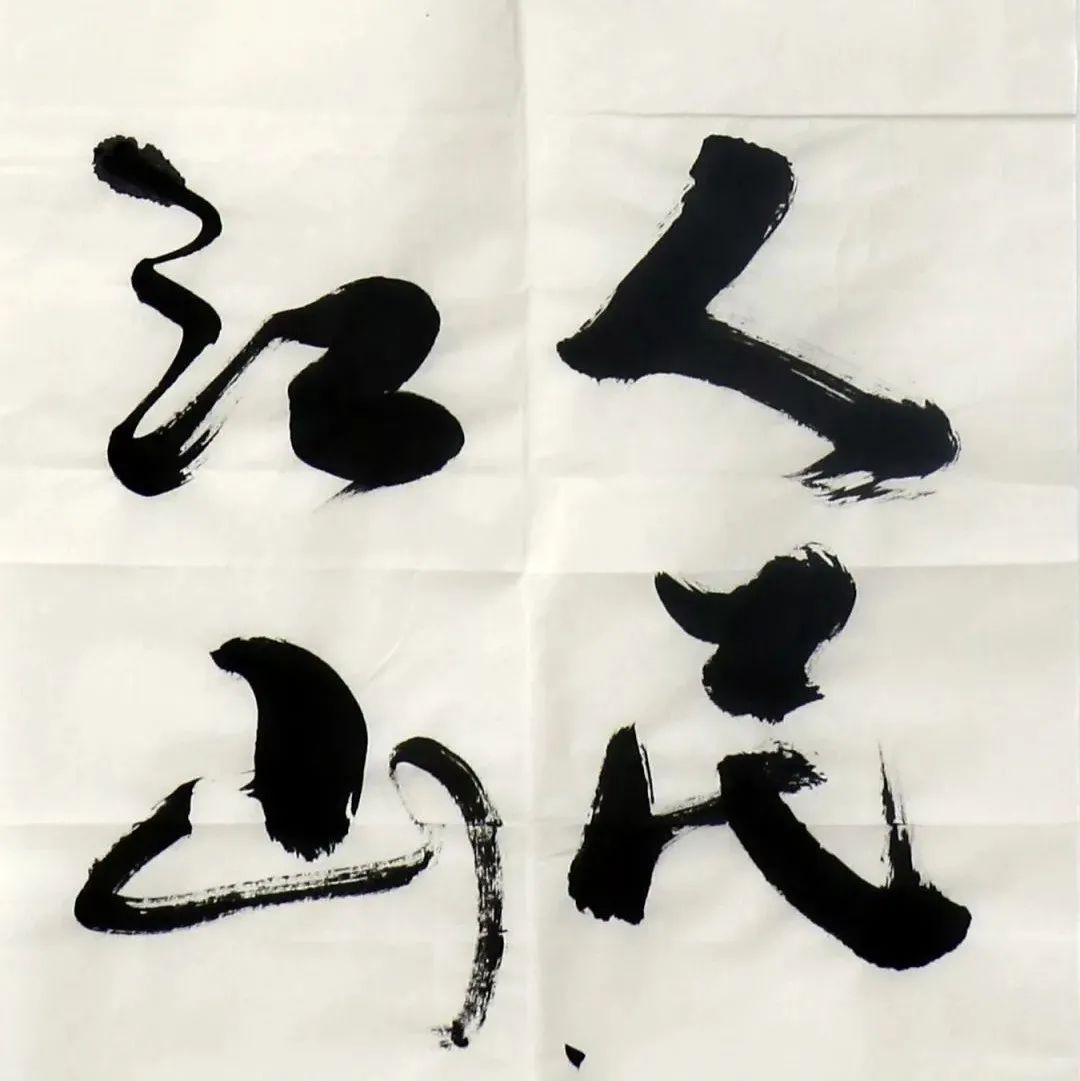 人民
江山